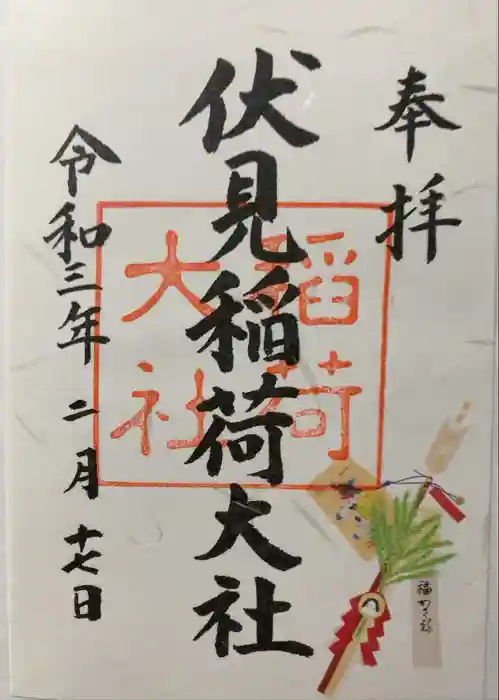 奉拝
伏見稲荷大社
稲荷
大社
令和三年二月十七日
福かさね